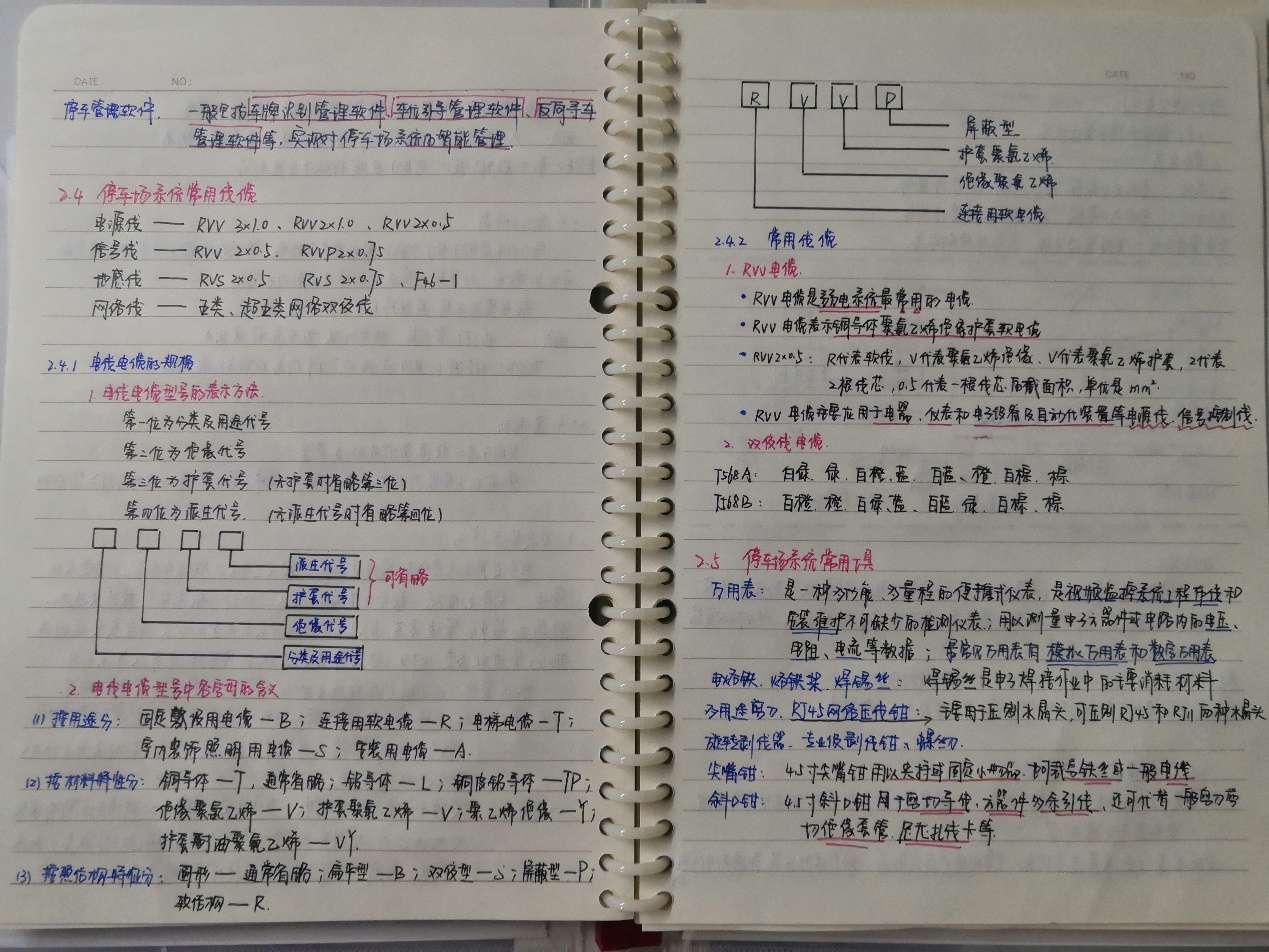 DATE NO:
停车管理软件. 一般包括车牌识别管理软件、车位引导管理软件、反向寻车
管理软件等,实现对停车场系统的智能管理.
2.4 停车场系统常用线缆
电源线 — RVV 3×1.0、RVV2×1.0、RVV2×0.5
信号线 — RVV 2×0.5. RVVP2×0.75
地感线 — RVS 2×0.5 RVS 2×0.75、F46-1
网络线 — 五类、超五类网络双绞线
2.4.1 电线电缆的规格
1. 电线电缆型号的表示方法.
第一位为分类及用途代号
第二位为绝缘代号
第三位为护套代号 (无护套时省略第三位)
第四位为派生代号. (无派生代号时省略第四位)
派生代号
护套代号
可省略
绝缘代号
分类及用途代号
2. 电线电缆型号中各字母的含义
(1) 按用途分: 固定敷设用电缆—B; 连接用软电缆—R; 电梯电缆—T;
室内装饰照明用电缆—S; 安装用电缆—A.
(2) 按材料特性分: 铜导体—T, 通常省略; 铝导体—L; 铜皮铝导体—TP;
绝缘聚氯乙烯—V; 护套聚氯乙烯—V; 聚乙烯绝缘—Y;
护套耐油聚氯乙烯—VY.
(3) 按照结构特征分: 圆形—通常省略; 扁平型—B; 双绞型—S; 屏蔽型—P;
软结构—R.
DATE NO
R V V P
屏蔽型
护套聚氯乙烯
绝缘聚氯乙烯
连接用软电缆
2.4.2 常用线缆
1. RVV电缆.
• RVV电缆是弱电系统最常用的电缆.
• RVV电缆表示铜导体聚氯乙烯绝缘护套软电缆
• RVV2×0.5: R代表软线, V代表聚氯乙烯绝缘、V代表聚氯乙烯护套, 2代表
2根线芯, 0.5代表一根线芯的截面积, 单位是mm².
• RVV电缆主要应用于电器、仪表和电子设备及自动化装置等电源线、信号控制线.
2. 双绞线电缆
T568A: 白绿、绿、白橙、蓝、白蓝、橙、白棕、棕
T568B: 白橙、橙、白绿、蓝、白蓝、绿、白棕、棕
2.5 停车场系统常用工具
万用表: 是一种多功能、多量程的便携式仪表, 是视频监控系统工程布线和
安装维护不可缺少的检测仪表; 用以测量电子元器件或电路内的电压、
电阻、电流等数据; 常见万用表有模拟万用表和数字万用表
电烙铁、烙铁架、焊锡丝: 焊锡丝是电子焊接作业中的主要消耗材料
多用途剪刀、RJ45网络压线钳: 主要用于压制水晶头, 可压制RJ45和RJ11两种水晶头
旋转剥线器、专业级剥线钳、螺丝刀.
尖嘴钳: 4.5寸尖嘴钳用以夹持或固定小物品、切断导铁丝或一般电线
斜口钳: 4.5寸斜口钳用于剪切导电、元器件多余引线、还可代替一般剪刀剪
切绝缘套管、尼龙扎线卡等.